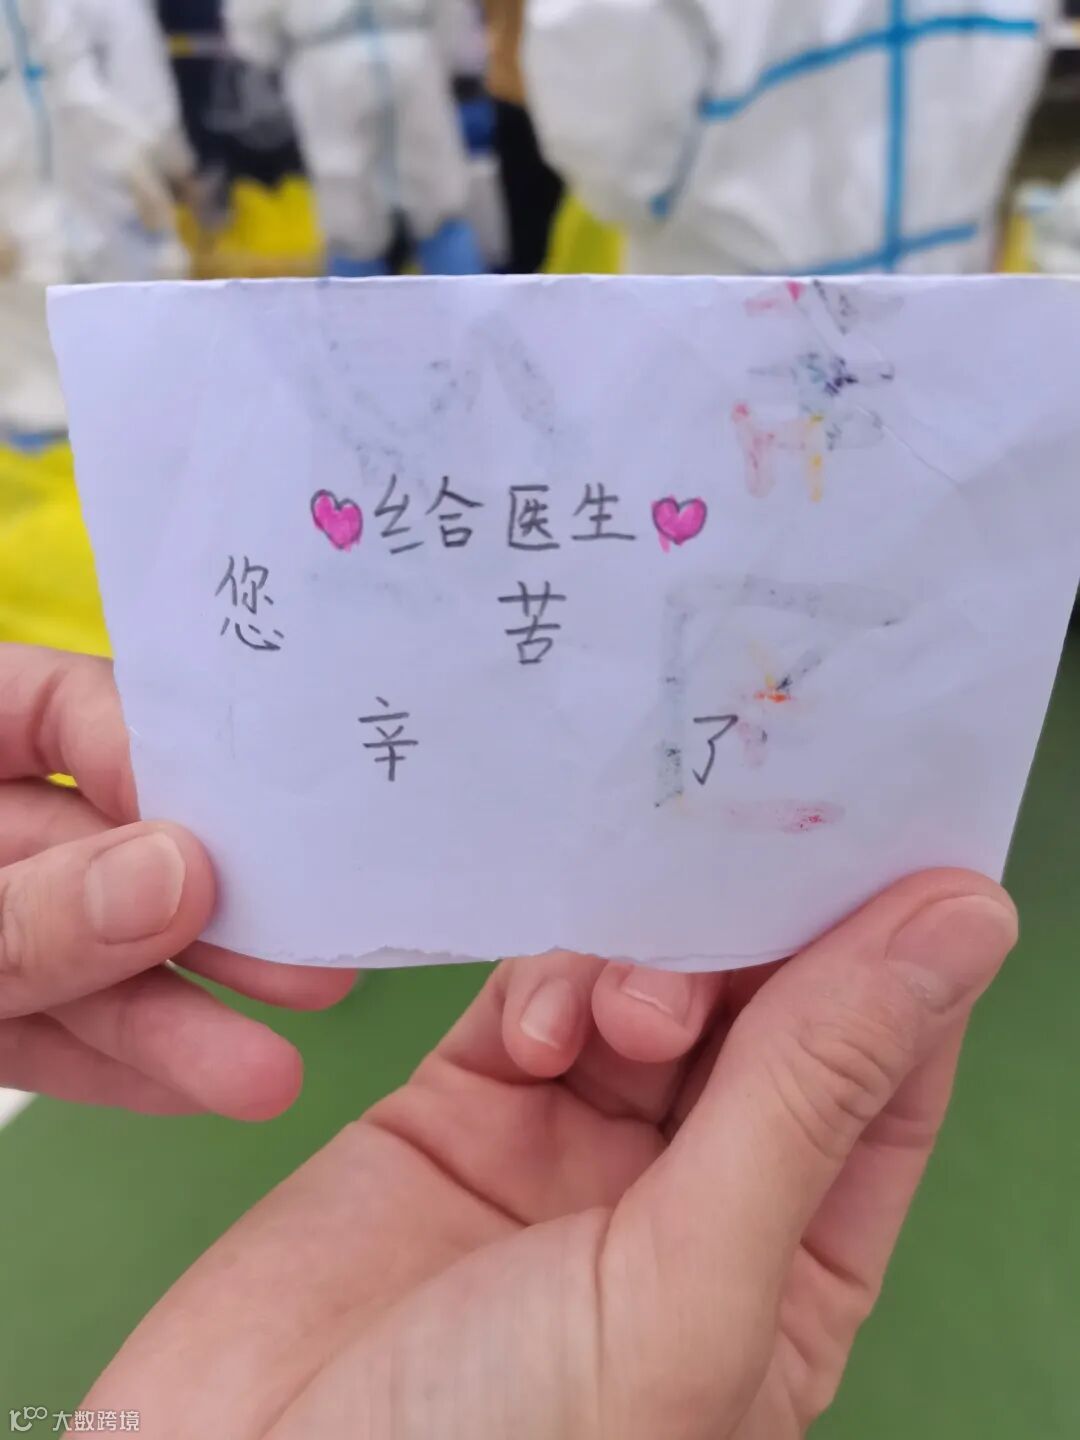 给医生
您辛苦了
大数跨境